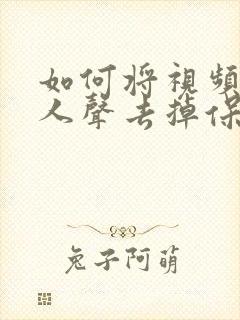 如何将視頻
人聲去掉保
兔子阿萌